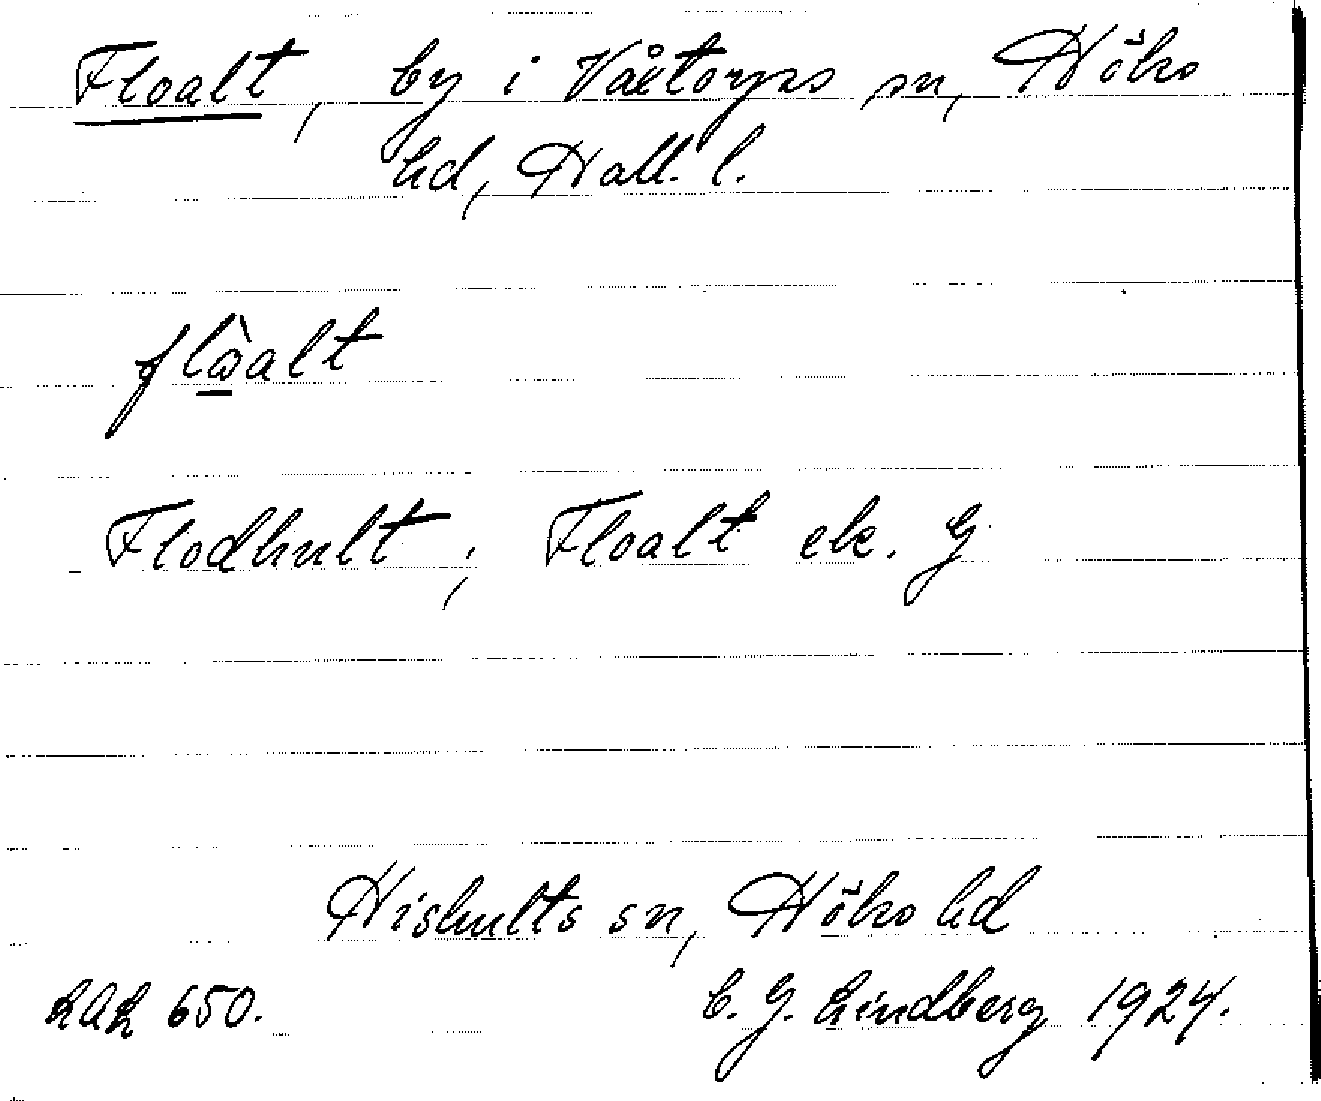 Floalt, by i Våxtorps sn, Höks
hd, Hall. l.
flòalt
Flodhult; Floalt ek. G
Hishults sn, Höks hd
LAL 650.
C. G. Lindberg 1924.